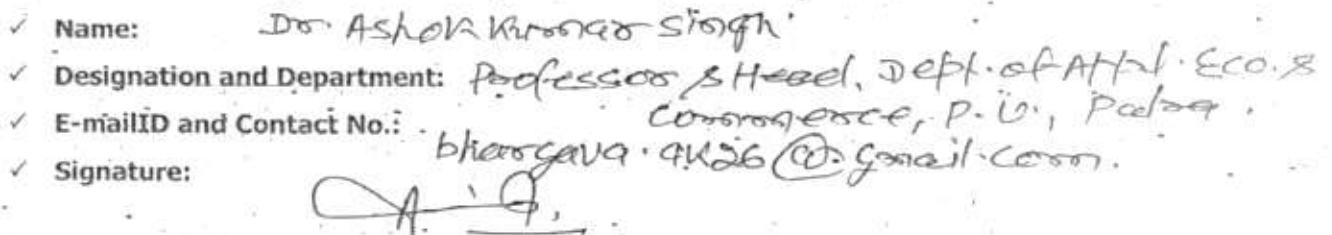 ✓ Name: Dr. Ashok Kumar Singh
✓ Designation and Department: Professor & Head, Dept. of Appl. Eco. &
Commerce, P.U., Patna.
✓ E-mailID and Contact No.: bhargava.ak26@gmail.com.
✓ Signature: